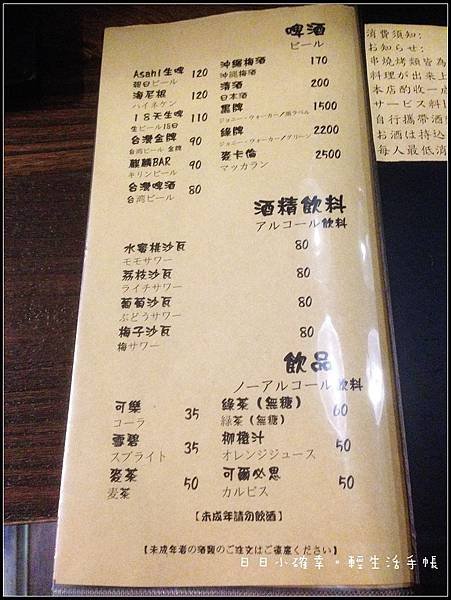 啤酒
ビール
Asahi生啤 120
朝日ビール
海尼根 120
ハイネケン
18天生啤 110
生ビール18日
台灣金牌 90
台湾ビール 金牌
麒麟BAR 90
キリンビール
台灣啤酒 80
台湾ビール
沖繩梅酒 170
沖縄梅酒
清酒 200
日本酒
黑牌 1500
ジョニー・ウォーカー/黒ラベル
綠牌 2200
ジョニー・ウォーカー/グリーン
麥卡倫 2500
マッカラン
酒精飲料
アルコール飲料
水蜜桃沙瓦 80
モモサワー
荔枝沙瓦 80
ライチサワー
葡萄沙瓦 80
ぶどうサワー
梅子沙瓦 80
梅サワー
飲品
ノーアルコール飲料
可樂 35
コーラ
雪碧 35
スプライト
麥茶 50
麦茶
綠茶(無糖) 60
緑茶(無糖)
柳橙汁 50
オレンジジュース
可爾必思 50
カルピス
【未成年請勿飲酒】
【未成年者の酒類のご注文はご遠慮ください】
消費須知:
お知らせ:
串燒烤類皆為
料理が出来上
本店酌收一成
サービス料1
自行攜帶酒
お酒は持込
每人最低消
日日小確幸。輕生活手帳